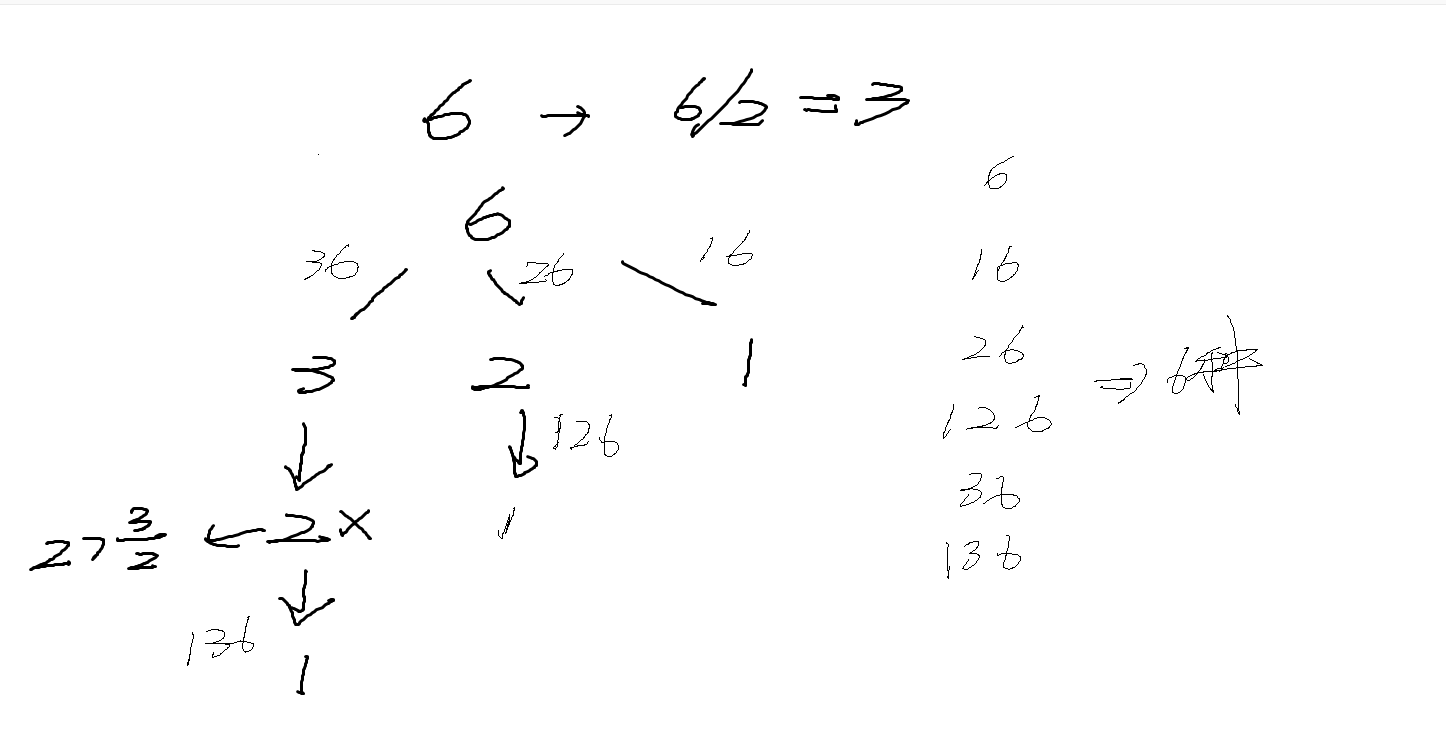 6 → 6/2 = 3
6
36 26 16
3 2 1
126
2 > 3/2 ← 2 × 1
136
1
6
16
26
126 ⇒ 6种
36
136